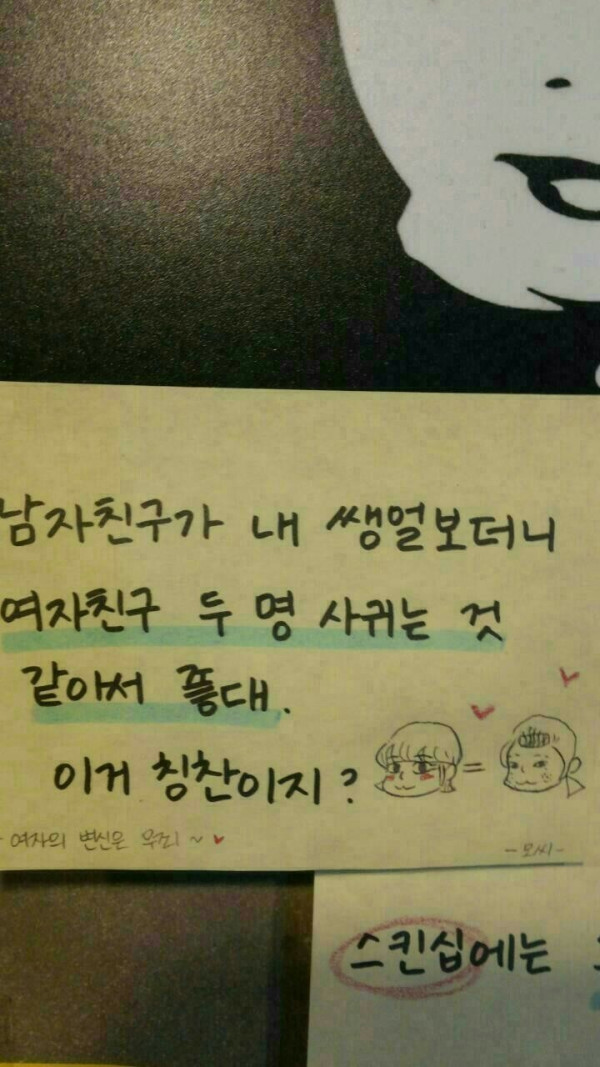 남자친구가 내 쌩얼보더니
여자친구 두 명 사귀는 것
같아서 좋대.
이거 칭찬이지?
여자의 변신은 무죄 ~
-모씨-
스킨십에는